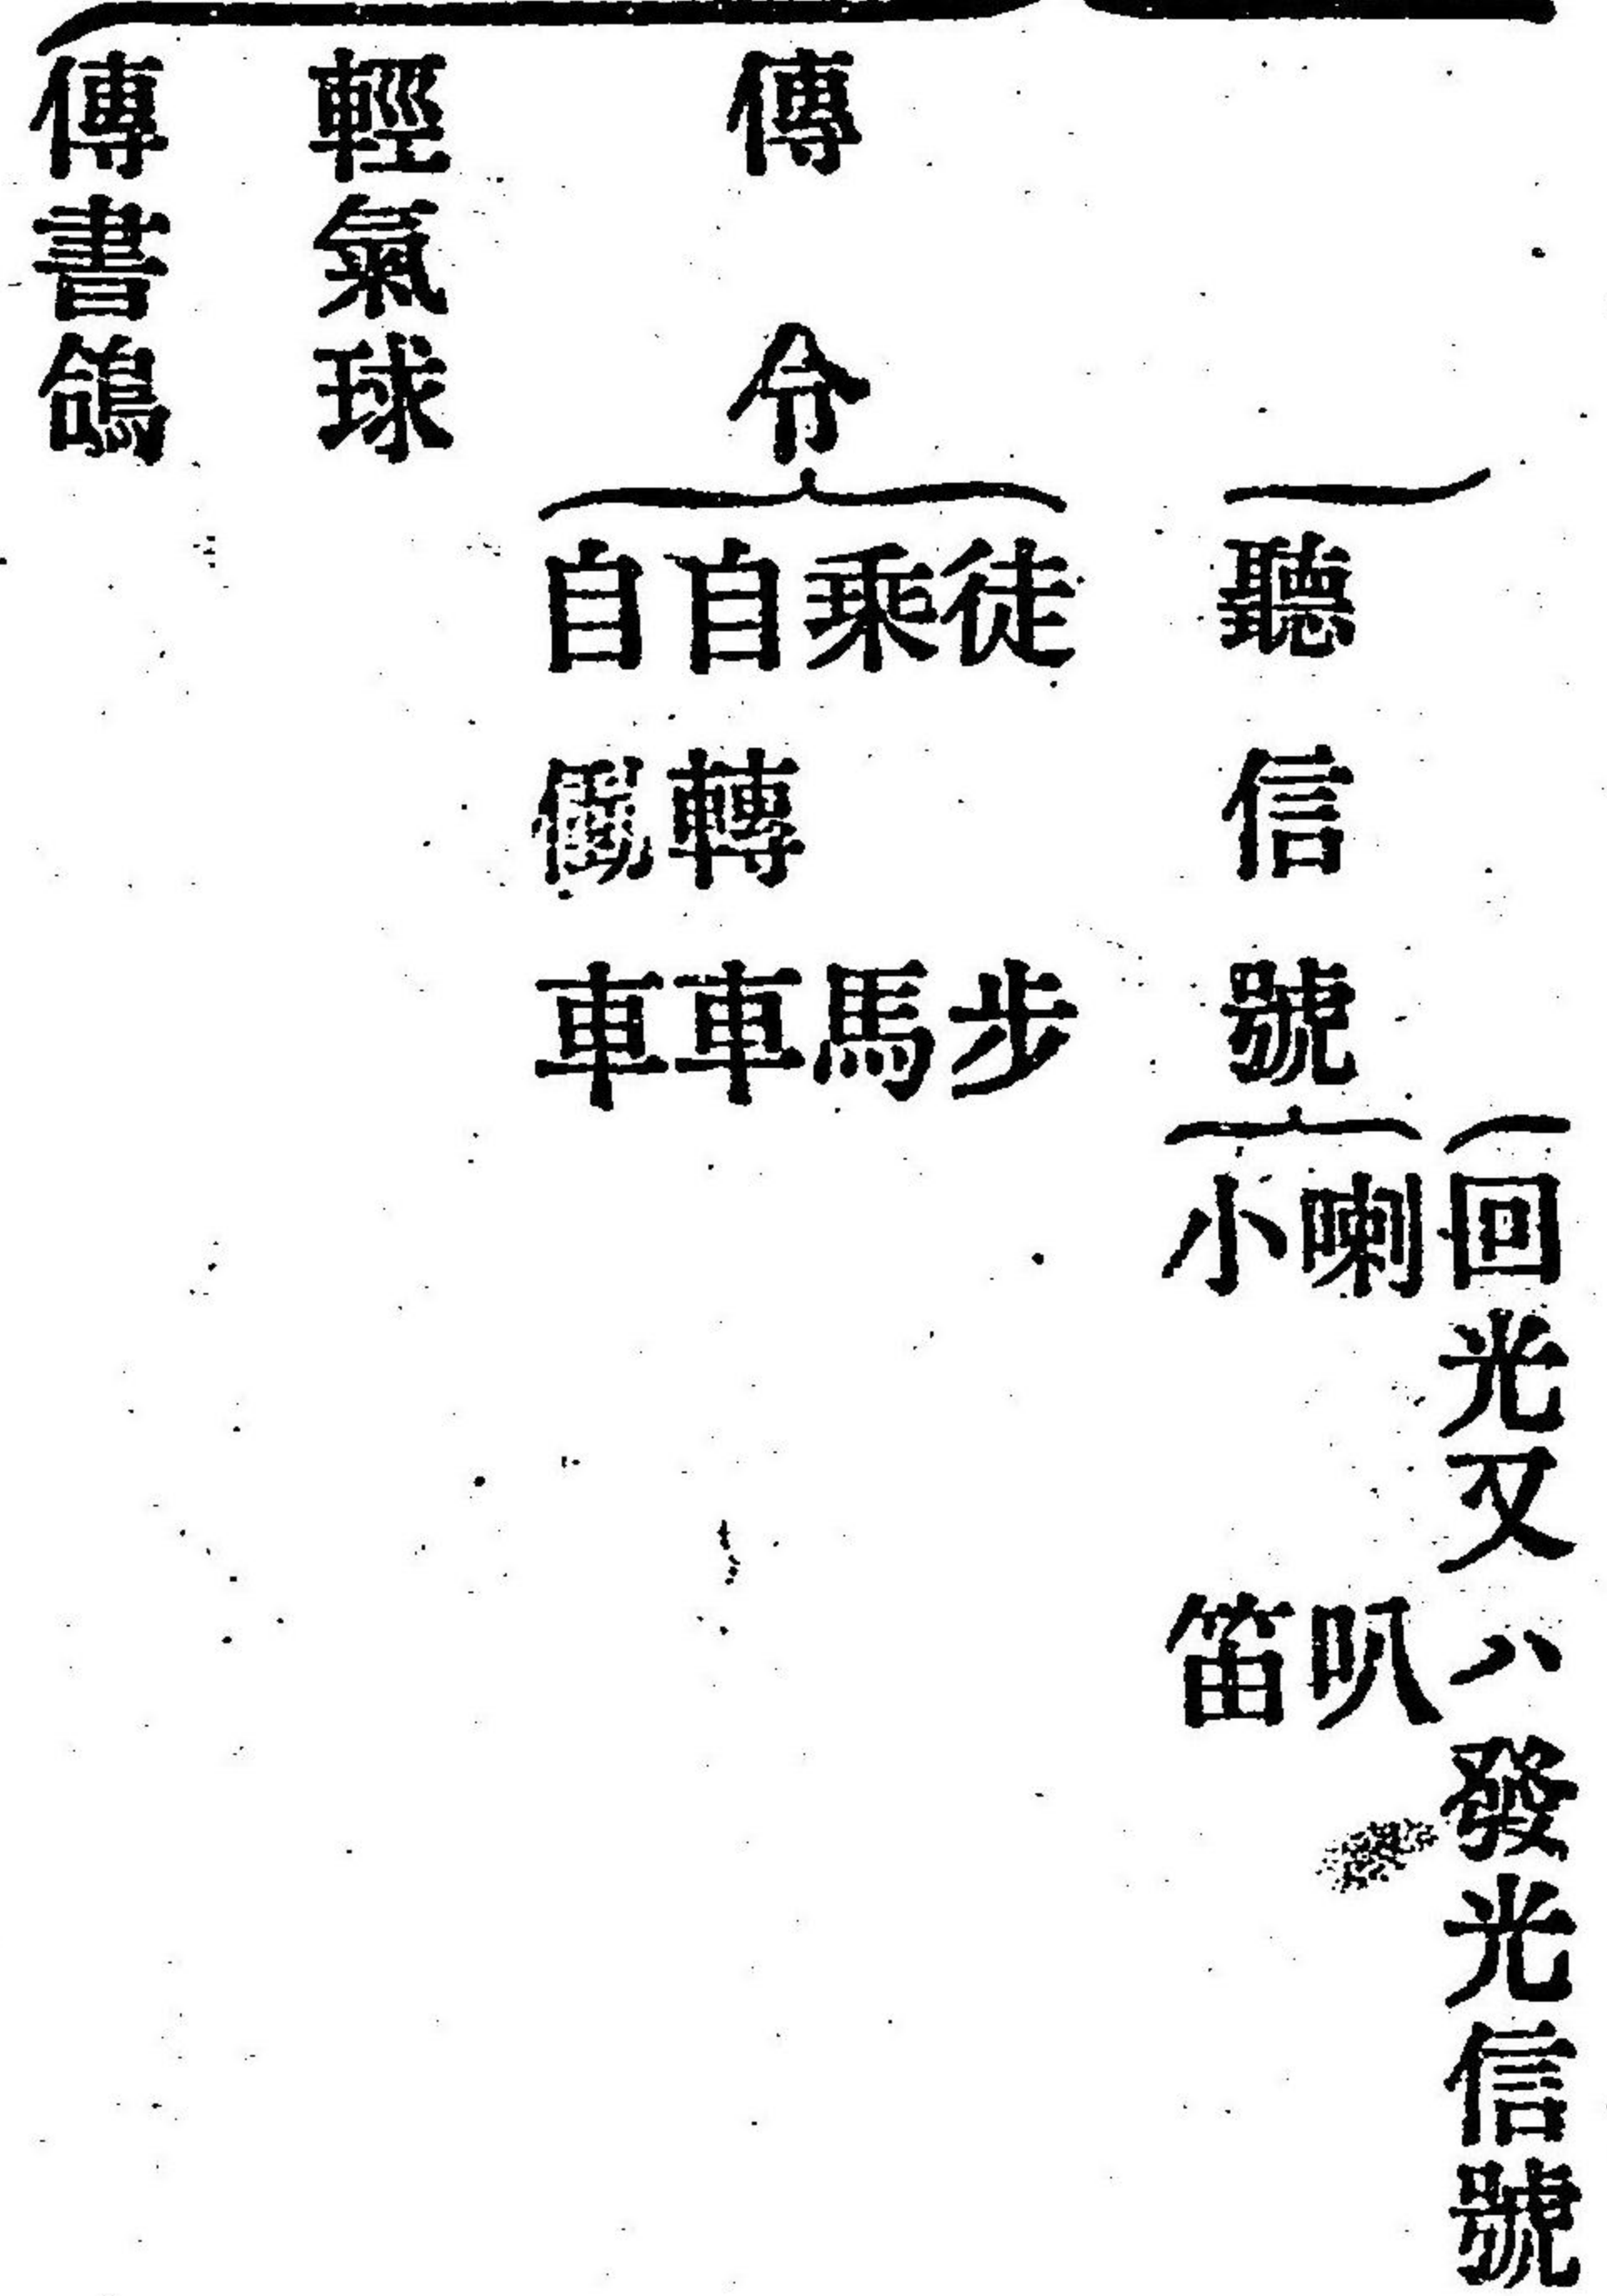 回光又ハ發光信號
聽信號
喇叭
小笛
傳令
徒步
乘馬
自轉車
自働車
輕氣球
傳書鴿